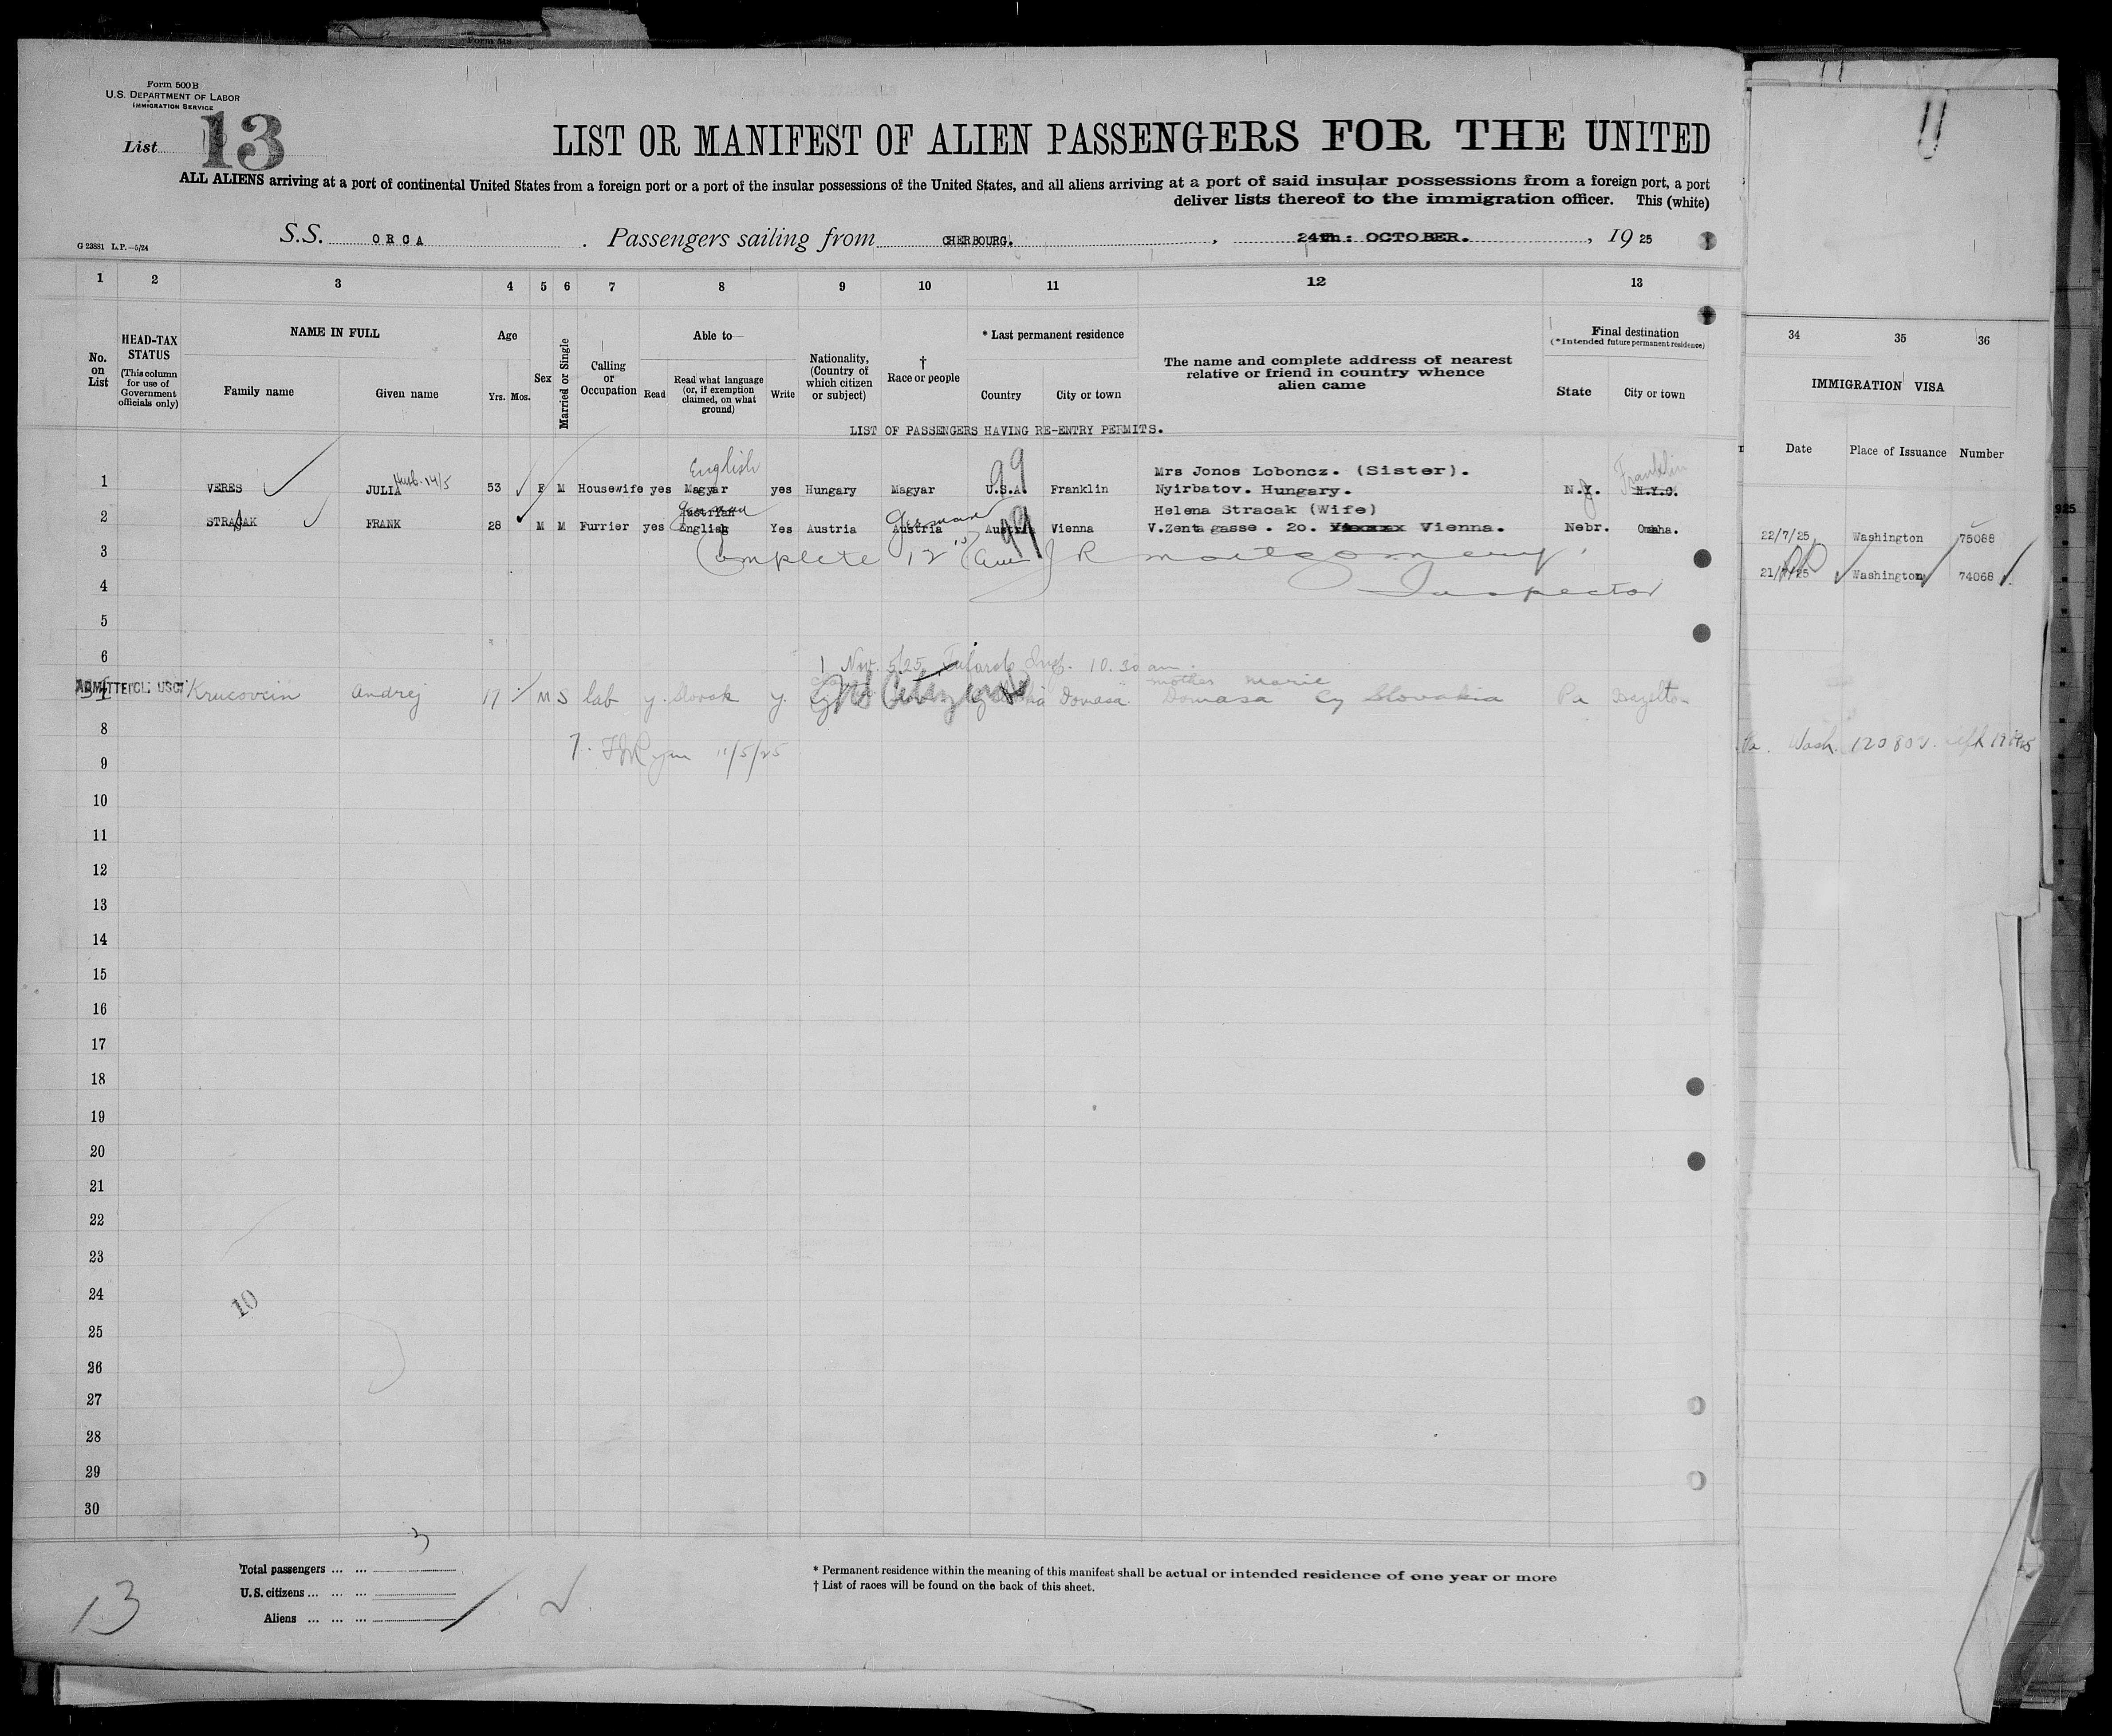 Form 500B
U.S. DEPARTMENT OF LABOR
IMMIGRATION SERVICE
List 13
LIST OR MANIFEST OF ALIEN PASSENGERS FOR THE UNITED
ALL ALIENS arriving at a port of continental United States from a foreign port or a port of the insular possessions of the United States, and all aliens arriving at a port of said insular possessions from a foreign port, a port
deliver lists thereof to the immigration officer. This (white)
G 23881 L.P.—5/24
S.S. ORCA. Passengers sailing from CHERBOURG., 24th: OCTOBER., 1925
1 2 3 4 5 6 7 8 9 10 11 12 13 34 35 36
No. on List
HEAD-TAX STATUS (This column for use of Government officials only)
NAME IN FULL
Family name Given name
Age
Yrs. Mos.
Sex
Married or Single
Calling or Occupation
Able to
Read
Read what language (or, if exemption claimed, on what ground)
Write
Nationality, (Country of which citizen or subject)
† Race or people
* Last permanent residence
Country City or town
The name and complete address of nearest relative or friend in country whence alien came
Final destination
(*Intended future permanent residence)
State City or town
IMMIGRATION VISA
Date Place of Issuance Number
LIST OF PASSENGERS HAVING RE-ENTRY PERMITS.
English 99 Mrs Jonos Loboncz. (Sister). Franklin
1 VERES JULIA 53 F M Housewife yes Magyar yes Hungary Magyar U.S.A. Franklin Nyirbatov. Hungary. N.Y. N.Y.C. 22/7/25 Washington 75088
Austrian German German 99 Helena Stracak (Wife)
2 STRACAK FRANK 28 M M Furrier yes English Yes Austria Austria Austria Vienna V.Zenta gasse. 20. Vienna. Nebr. Omaha. 21/7/25 Washington 74068
3 Complete 12 J R Montgomery
4 Inspector
5
6 1 Nov. 5/25 Insp. 10.30 am.
ADMITTED CL: USC: mother Marie
Krucovcin Andrej 17 M S lab y. Slovak y. US Citizen Domasa Domasa Cz Slovakia Pa Hazelton
8 7. 11/5/25 Wash. 120802
9
10
11
12
13
14
15
16
17
18
19
20
21
22
23
24
25
26
27
28
29
30
10
3
Total passengers ... ...
U.S. citizens ... ... ...
Aliens ... ... ...
13
* Permanent residence within the meaning of this manifest shall be actual or intended residence of one year or more
† List of races will be found on the back of this sheet.